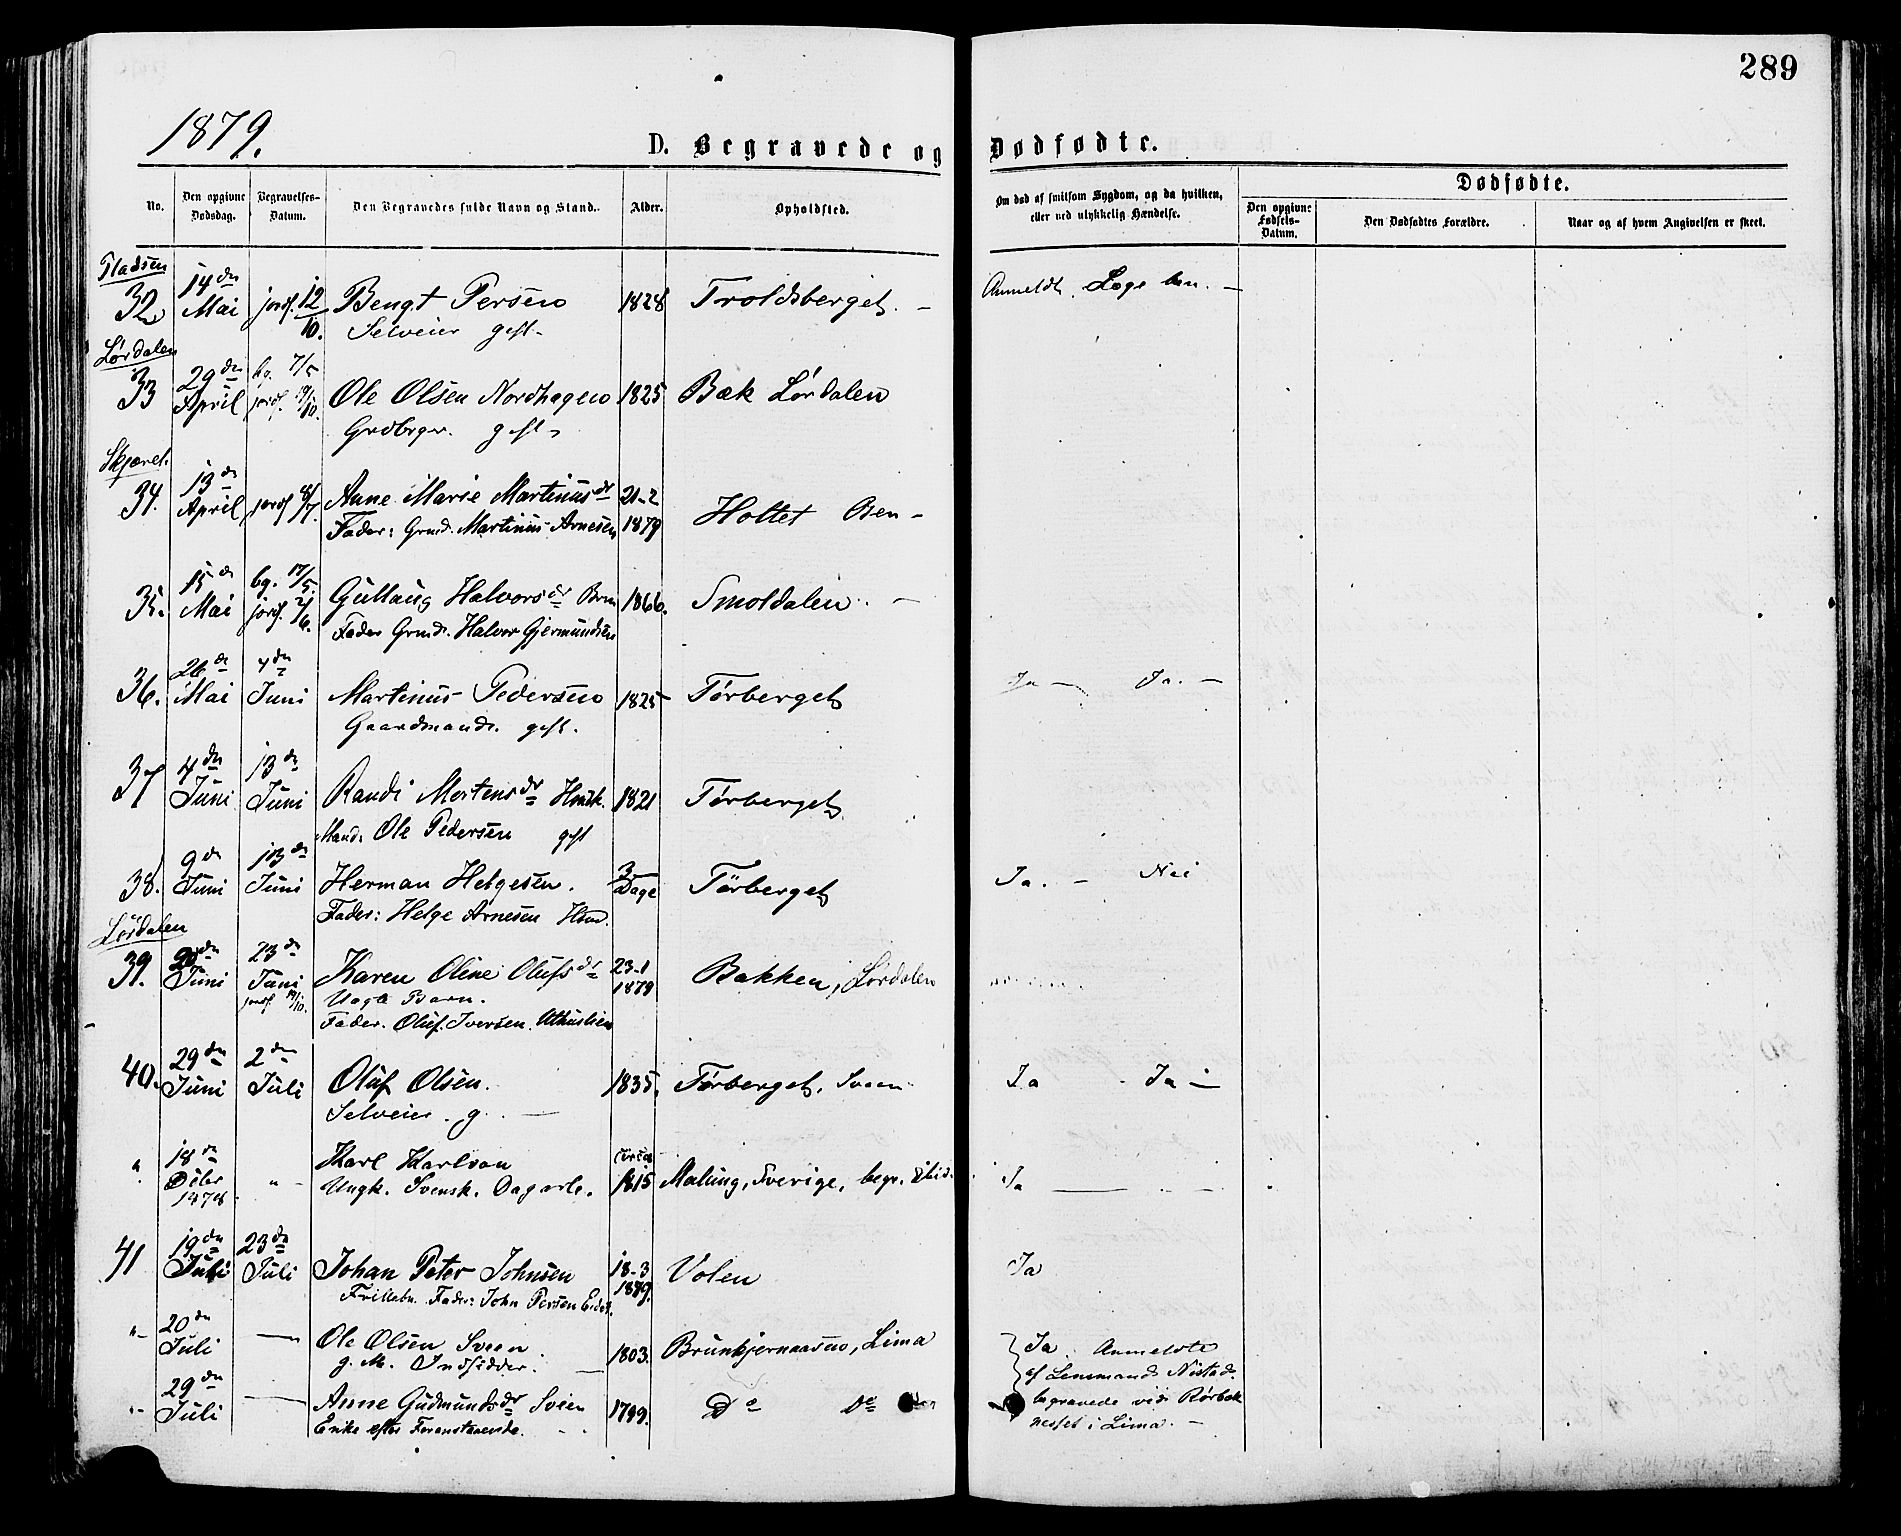 289
1879.
D. Begravede og Dødfødte.
No. Den opgivne Dødsdag. Begravelses-Datum. Den Begravedes fulde Navn og Stand. Alder. Opholdsted. Om død af smitsom Sygdom, og da hvilken, eller ved ulykkelig Hændelse. Dødfødte.
Den opgivne Fødsels-Datum. Den Dødfødtes Forældre. Naar og af hvem Angivelsen er skeet.
Pladsen
32. 14de Mai jordf. 12/10. Bengt Persen 1828 Troldsberget. - Anmeldt. Læge ben. -
Selveier gift -
Lørdalen
33 29de April bg. 7/5 jordf. 19/10. Ole Olsen Nordhagen 1825 Bæk Lørdalen
Grdbrger. gift -
Skjæret.
34. 13de April jordf 8/7. Anne Marie Martinusdr 21-2 1879 Holtet Osen -
Fader: Grmd. Martinus Arnesen
35. 15de Mai bg. 17/5. jordf. 2/6. Gullaug Halvorsdr Bren 1866. Smoldalen. -
Fader Grmd. Halvor Gjermundsen
36. 26de Mai 4de Juni Martinus Pedersen 1825 Tørberget Ja - Ja. -
Gaardmand. gift.
37 4de Juni 13de Juni Randi Mortensdr Hmdk. 1821 Tørberget
Mand: Ole Pedersen gift
38. 9de Juni 13de Juni Herman Helgesen. 3 Dage Tørberget Ja. - Nei
Fader: Helge Arnesen Hsmd.
Lørdalen
39. Juni 23de Juni jordf. 19/10. Karen Oline Olufsdr 23-1 1879 Bakken, Lørdalen
Uægte Barn.
Fader. Oluf Iversen
40. 29de Juni 2den Juli Oluf Olsen. 1835. Tørberget. Sveen Ja - Ja -
Selveier. g. -
" 18de Dcbr 1878 " - Karl Karlson circa 1815 Malung, Sverige, begr. Ja
Ungk. Svensk. Dagarb.
41 19de Juli 23de Juli Johan Peter Johnsen 18-3 1879. Volen Ja
Frillebn. Fader: John Persen
" - 20de Juli - Ole Olsen Sveen 1803. Brunkjernaasen, Lima Ja. Anmeldte
g. M. Indsidder. - af Lensmand Nistad.
" - 29de Juli - Anne Gudmundsdr Sveen 1799. Do Do begravede vid Rørbæk
Enke efter Foranstaaende. nesset i Lima. -